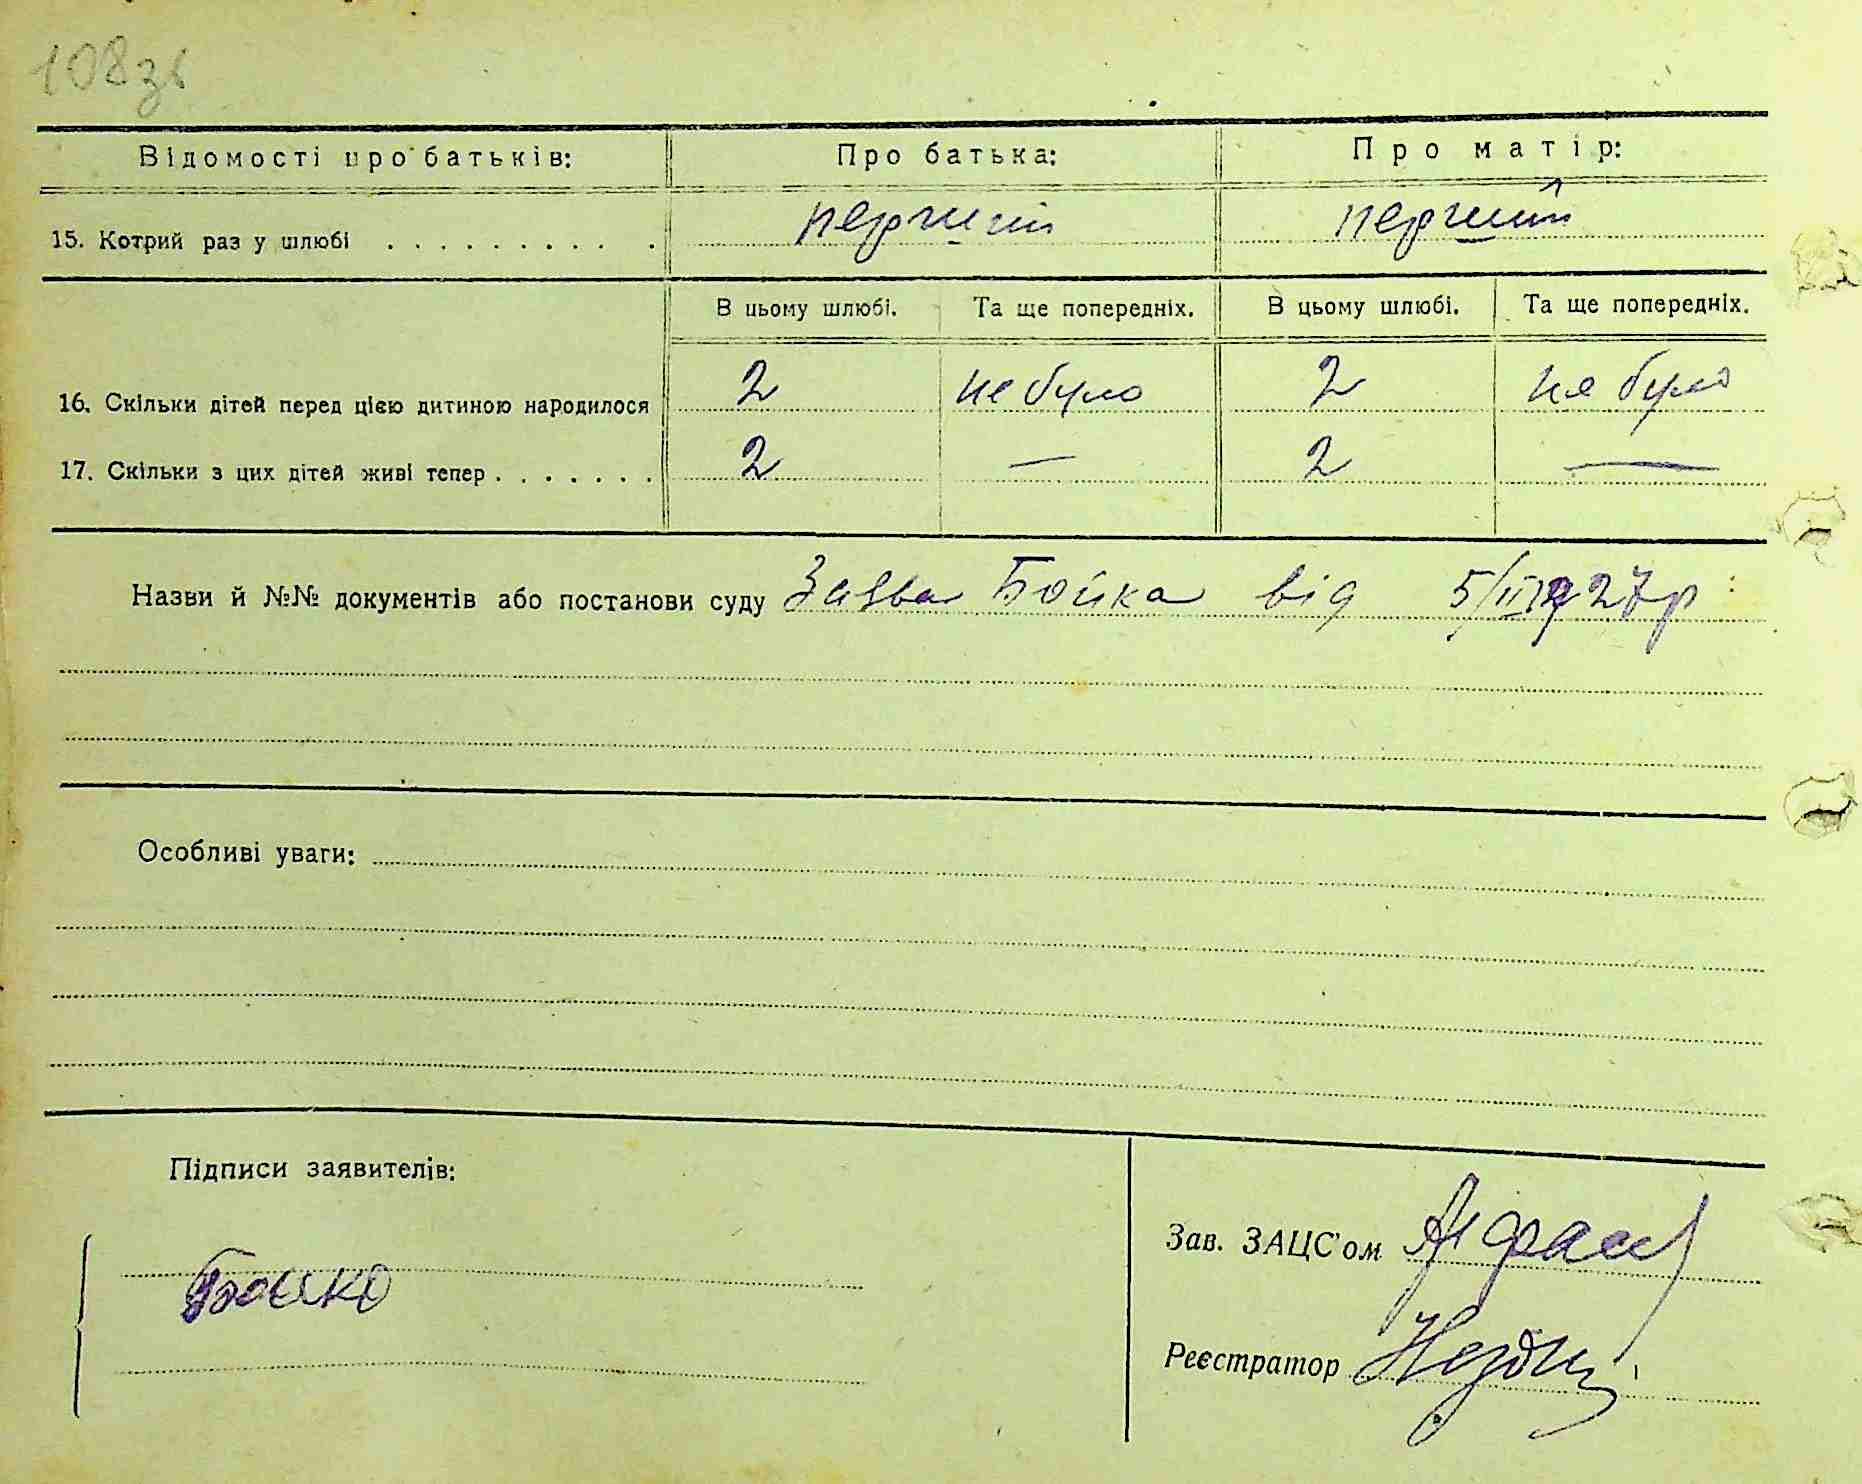 108зв
Відомості про батьків: Про батька: Про матір:
15. Котрий раз у шлюбі . . . . . . . . . . перший перший
В цьому шлюбі. Та ще попередніх. В цьому шлюбі. Та ще попередніх.
16. Скільки дітей перед цією дитиною народилося 2 не було 2 не було
17. Скільки з цих дітей живі тепер . . . . . . . 2 — 2 —
Назви й №№ документів або постанови суду Заява Бойка від 5/II 1927р
Особливі уваги:
Підписи заявителів:
Зав. ЗАЦС'ом
Бойко
Реєстратор